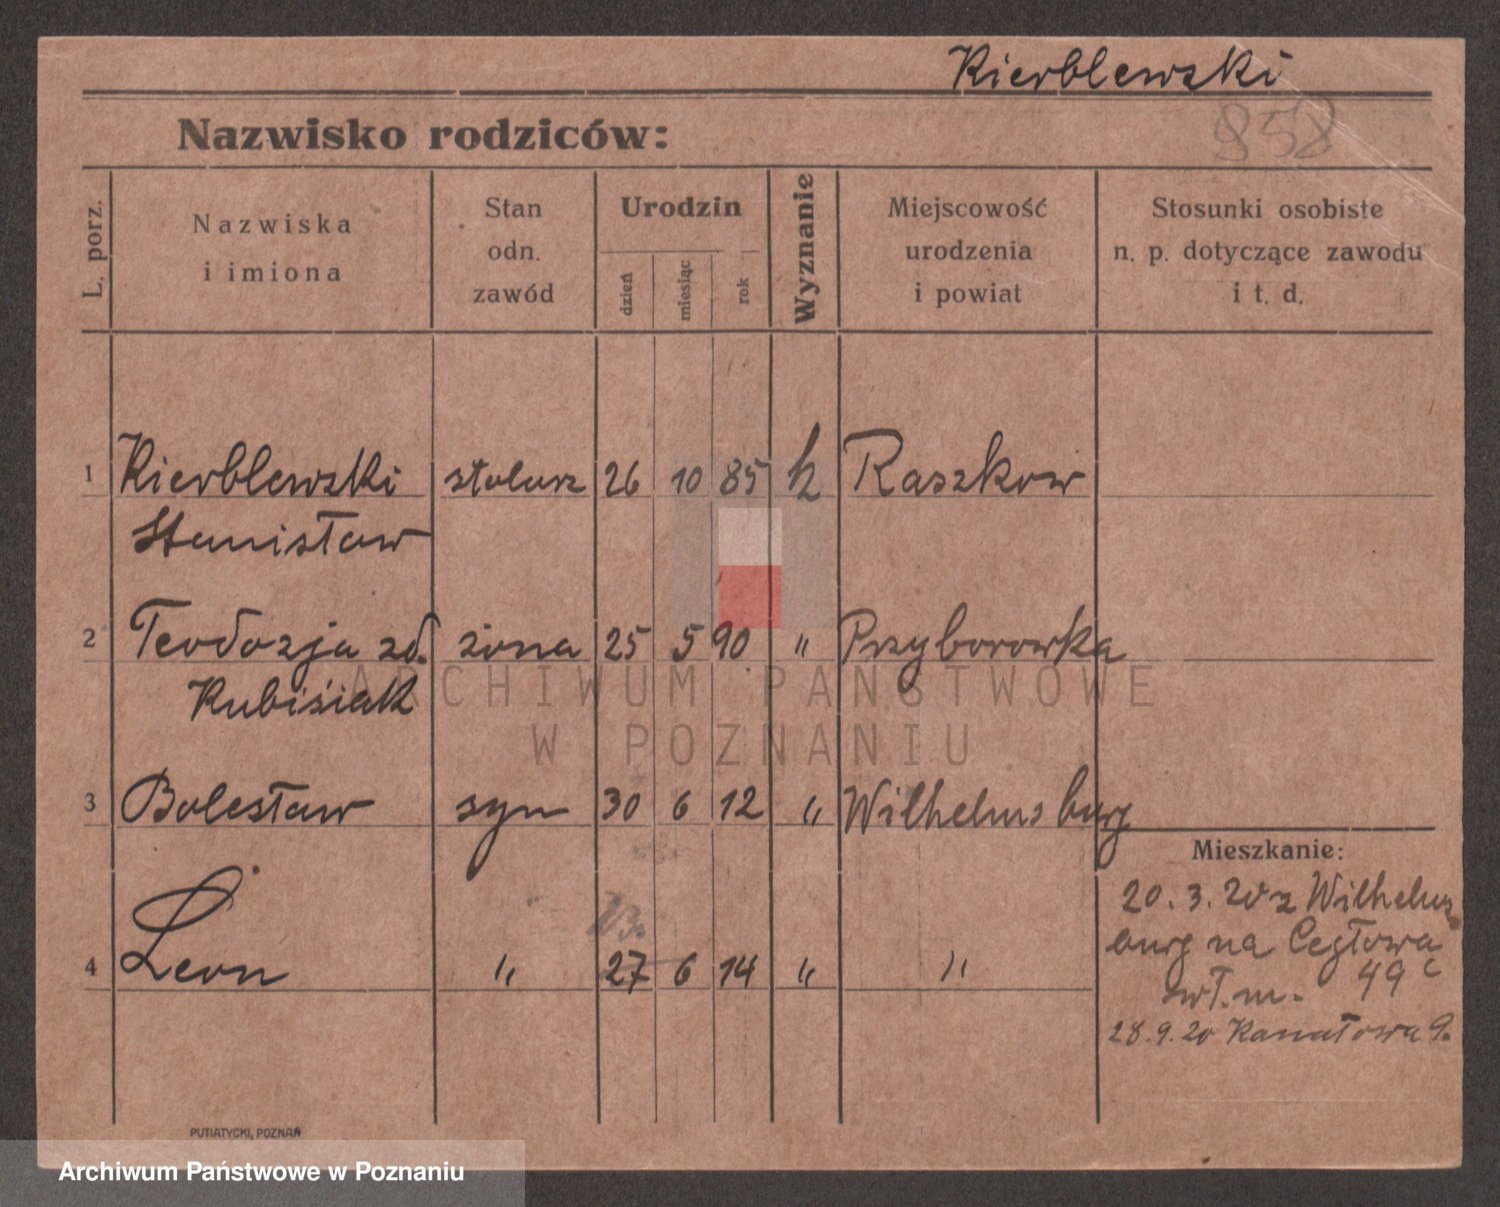 Kierblewski
958
Nazwisko rodziców:
L. porz.
Nazwiska
i imiona
Stan
odn.
zawód
Urodzin
dzień
miesiąc
rok
Wyznanie
Miejscowość
urodzenia
i powiat
Stosunki osobiste
n. p. dotyczące zawodu
i t. d.
1 Kierblewski stolarz 26 10 85 k Raszkow
Stanisław
2 Teodozja zd. żona 25 5 90 " Przyborowka
Kubisiak
ARCHIWUM PAŃSTWOWE
W POZNANIU
3 Bolesław syn 30 6 12 " Wilhelmsburg
Mieszkanie:
4 Leon " 27 6 14 " "
20.3.20 z Wilhelms
burg na Cegłowa
wł. m. 49c
28.9.20 Kanałowa 9.
PUTIATYCKI, POZNAŃ
Archiwum Państwowe w Poznaniu